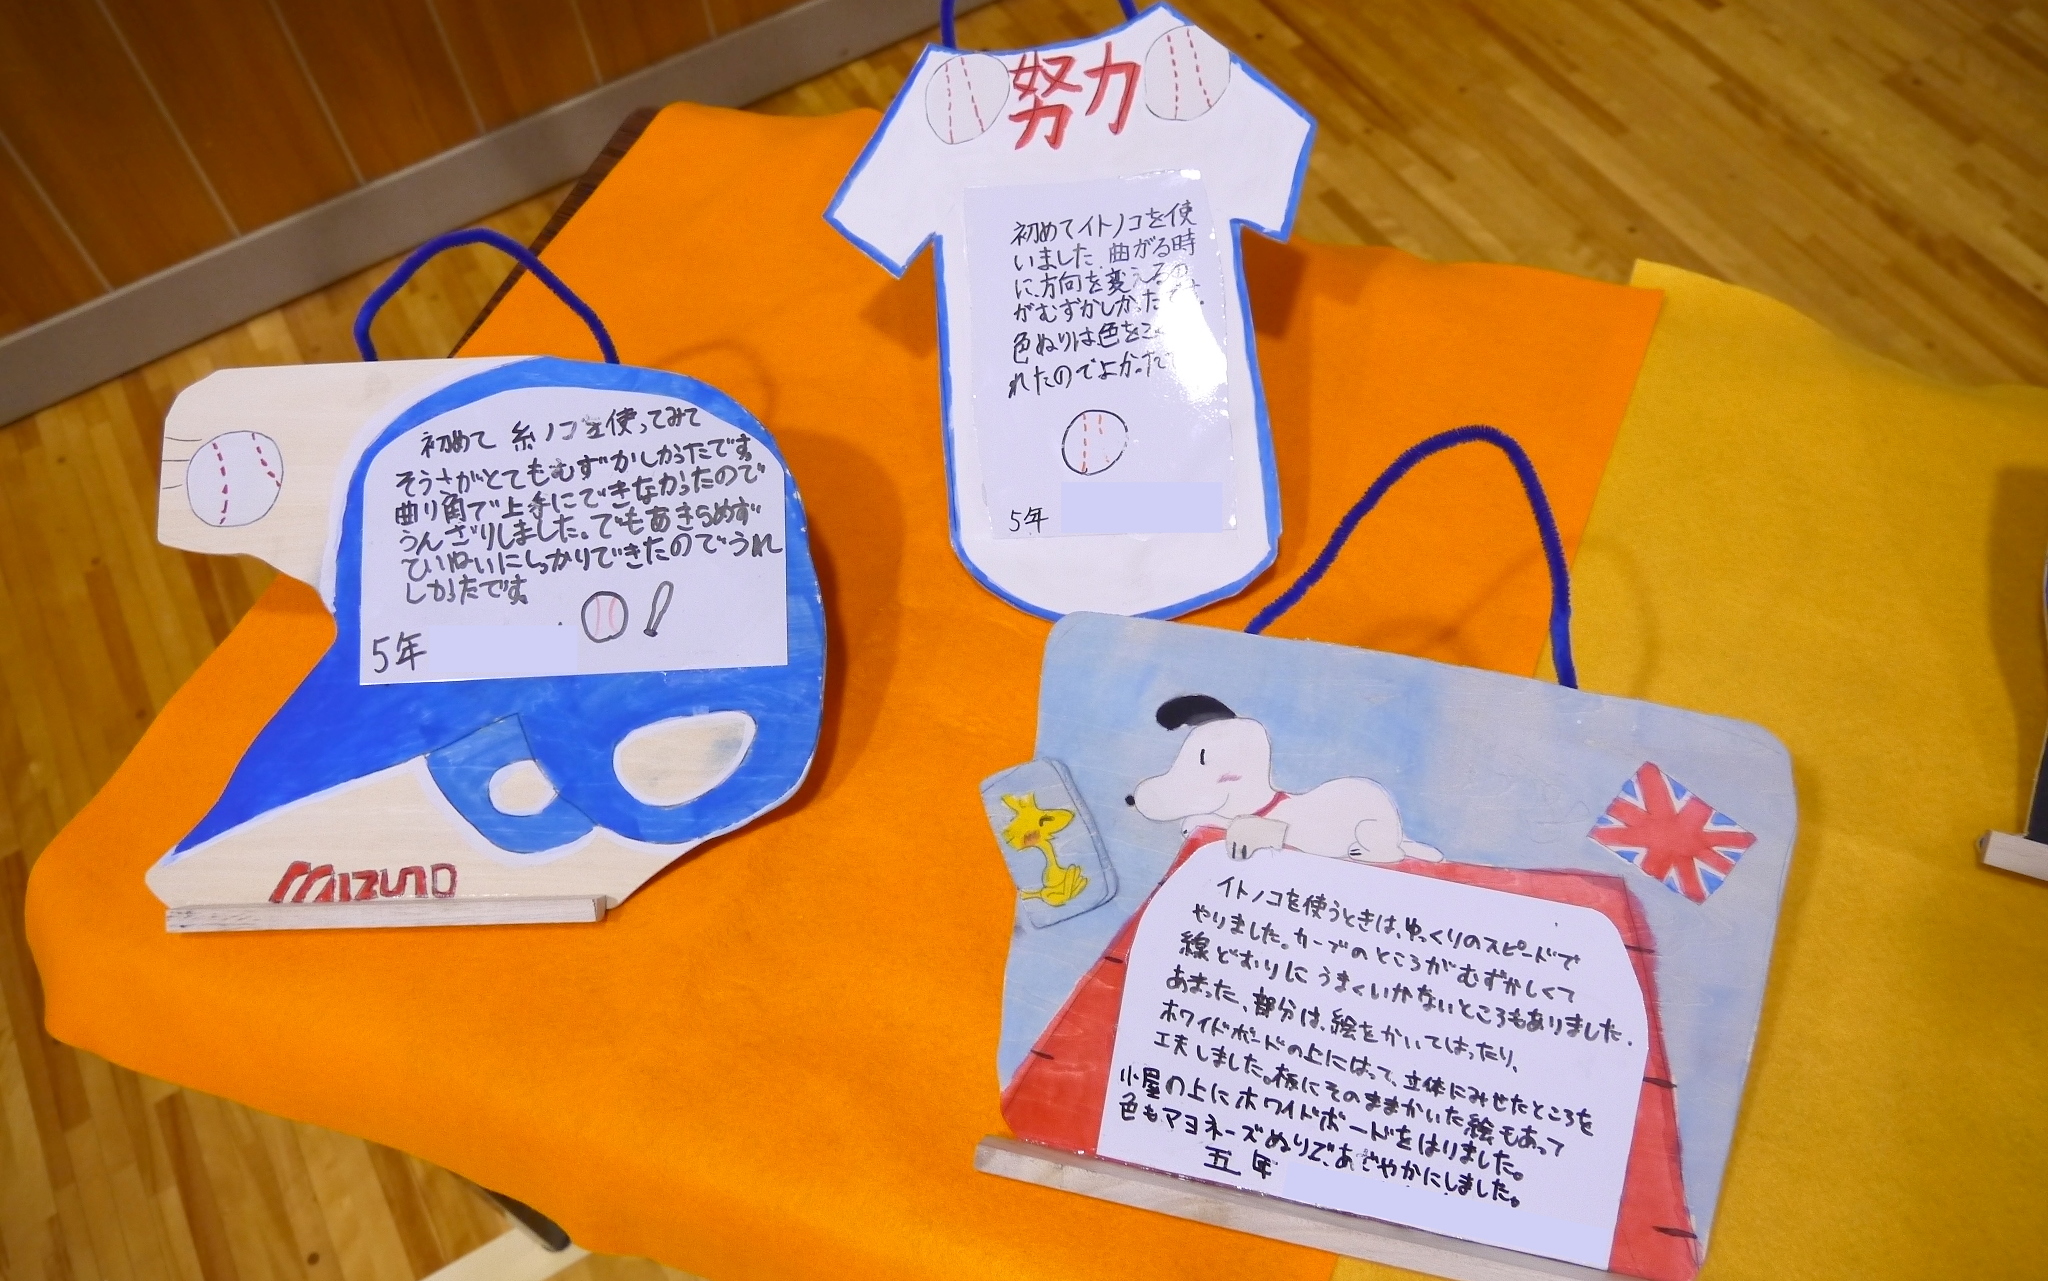 努力
初めてイトノコを使
いました.曲がる時
に方向を変えるの
がむずかしかった
色ぬりは色をこ
れたのでよかった
5年
初めて 糸ノコを使ってみて
そうさがとてもむずかしかったです。
曲り角で上手にできなかったので
うんざりしました。でもあきらめず
ていねいにしっかりできたのでうれ
しかったです。
5年
MIZUNO
イトノコを使うときは、ゆっくりのスピードで
やりました。カーブのところがむずかしくて
線どむりにうまくいかないところもありました.
あまった、部分は、絵をかいてはったり、
ホワイドボードの上にはって、立体にみせたところを
工夫しました。板にそのままかいた絵もあって
小屋の上にホワイドボードをはりました。
色もマヨネーズぬりで、あざやかにしました。
五年